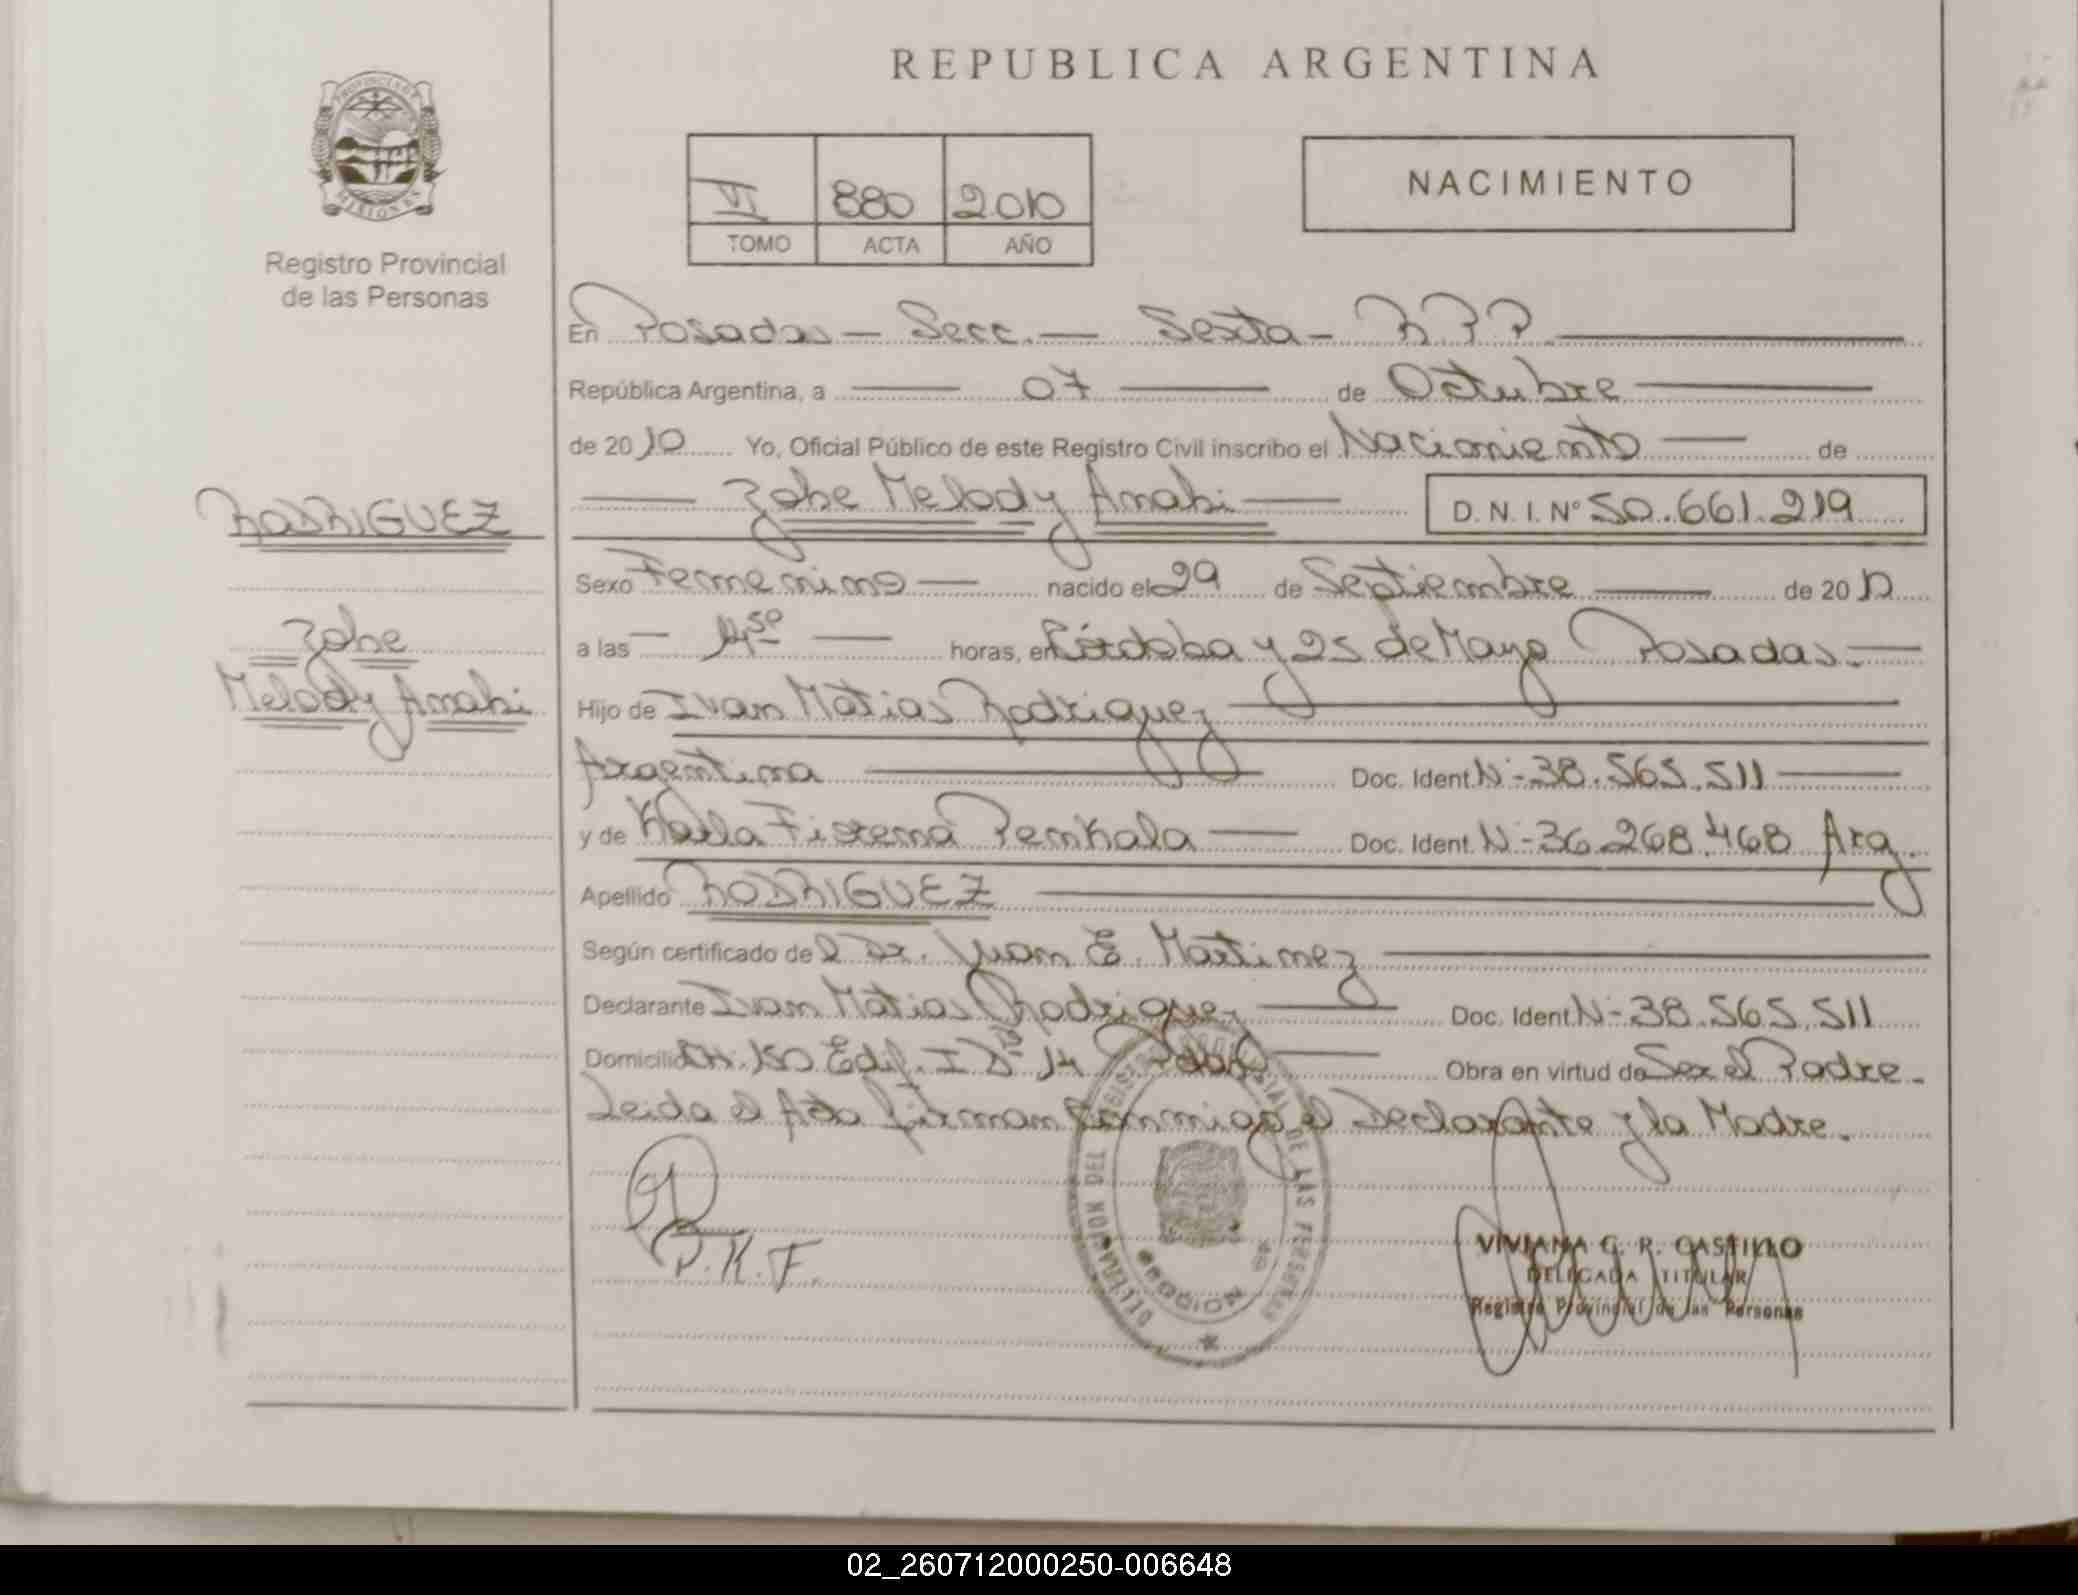 REPUBLICA ARGENTINA
PROVINCIA DE
MISIONES
Registro Provincial
de las Personas
VI 880 2010
TOMO ACTA AÑO
NACIMIENTO
En Posadas - Secc. - Sexta - R P P.
República Argentina, a 07 de Octubre
de 2010 Yo, Oficial Público de este Registro Civil inscribo el Nacimiento de
Zohe Melody Anahi D.N.I. Nº 50.661.219
RODRIGUEZ
Zohe
Melody Anahi
Sexo Femenino nacido el 29 de Septiembre de 2010
a las horas, en Córdoba y 25 de Mayo Posadas.-
Hijo de Ivan Matias Rodriguez
Argentina Doc. Ident. Nº 38.565.511
y de Karla Fiorema Pemkala Doc. Ident. Nº 36.268.468 Arg.
Apellido RODRIGUEZ
Según certificado del Dr. Juan E. Martinez
Declarante Ivan Matias Rodriguez Doc. Ident. Nº 38.565.511
Domicilio Ch. 150 Edif. I 14 Pdas Obra en virtud de Ser el Padre.-
Leida el Acta firman conmigo el Declarante y la Madre.
P.K.F.
DEL REGISTRO PROVINCIAL DE LAS PERSONAS
VIVIANA G. R. CASTILLO
DELEGADA TITULAR
Registro Provincial de las Personas
02_260712000250-006648